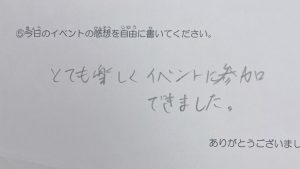 ⑤今日のイベントの感想を自由に書いてください。
とても楽しくイベントに参加
できました。
ありがとうございまし